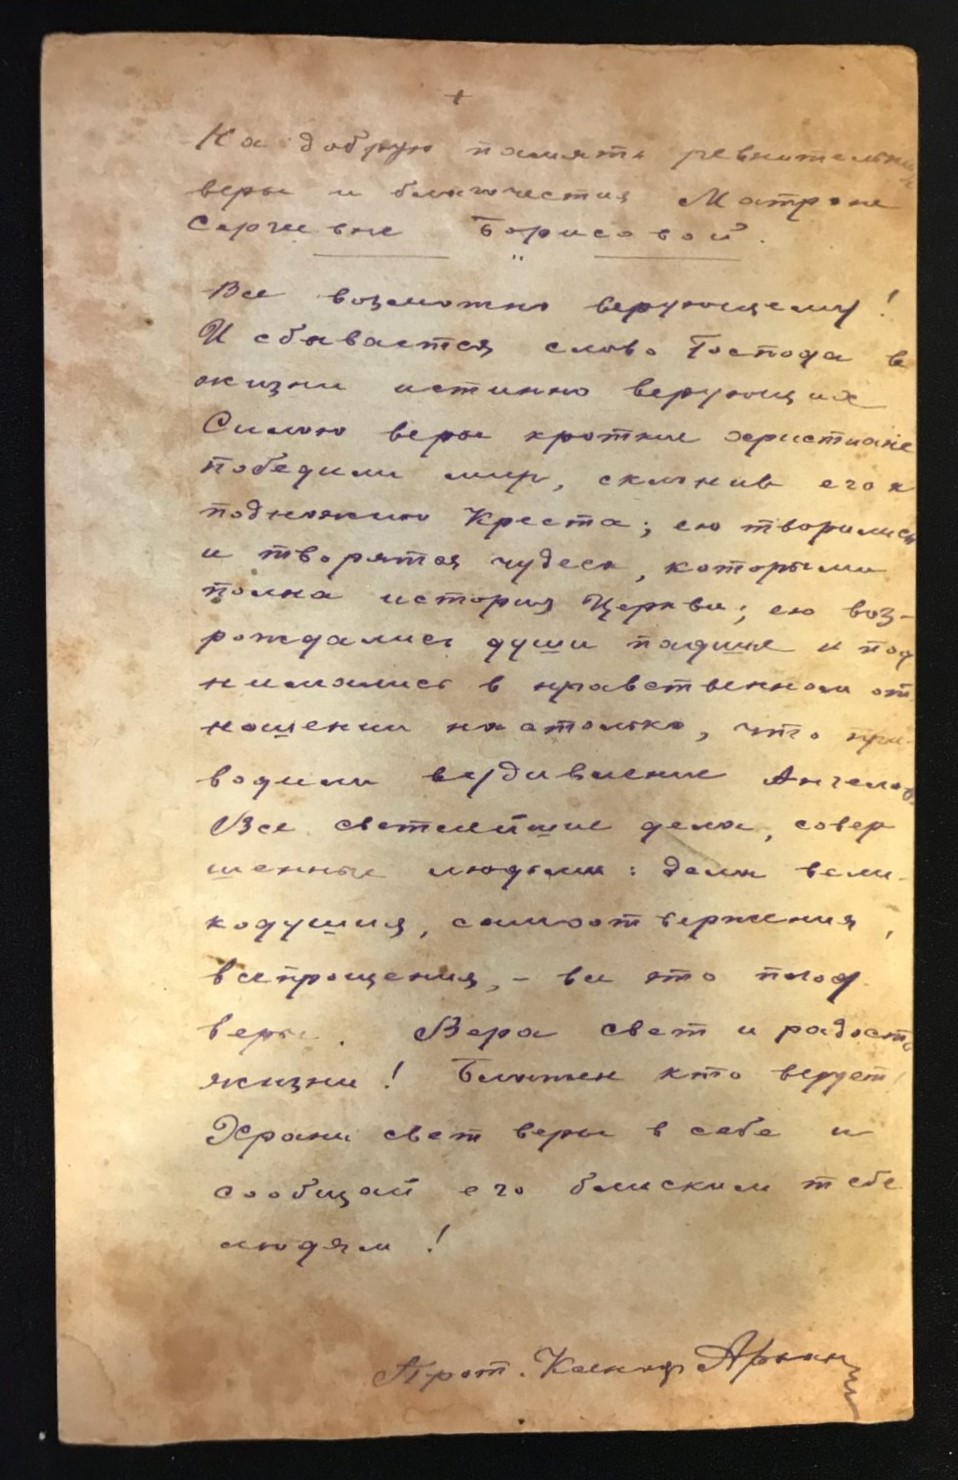 +
На добрую память ревнительнице
веры и благочестия Матроне
Сергиевне Борисовой.
Все возможно верующему!
И сбывается слово Господа в
жизни истинно верующих
Силою веры кроткие христиане
победили мир, склонив его к
подножию Креста; ею творились
и творятся чудеса, которыми
полна история Церкви; ею воз-
рождались души падшия и под
нимались в нравственном от
ношении настолько, что при-
водили в удивление Ангелов.
Все светлейшие дела, совер
шенные людьми: дела вели-
кодушия, самоотвержения,
всепрощения, - все это плод
веры. Вера свет и радость
жизни! Блажен кто верует!
Храни свет веры в себе и
сообщай его блиским тебе
людям!
Прот.